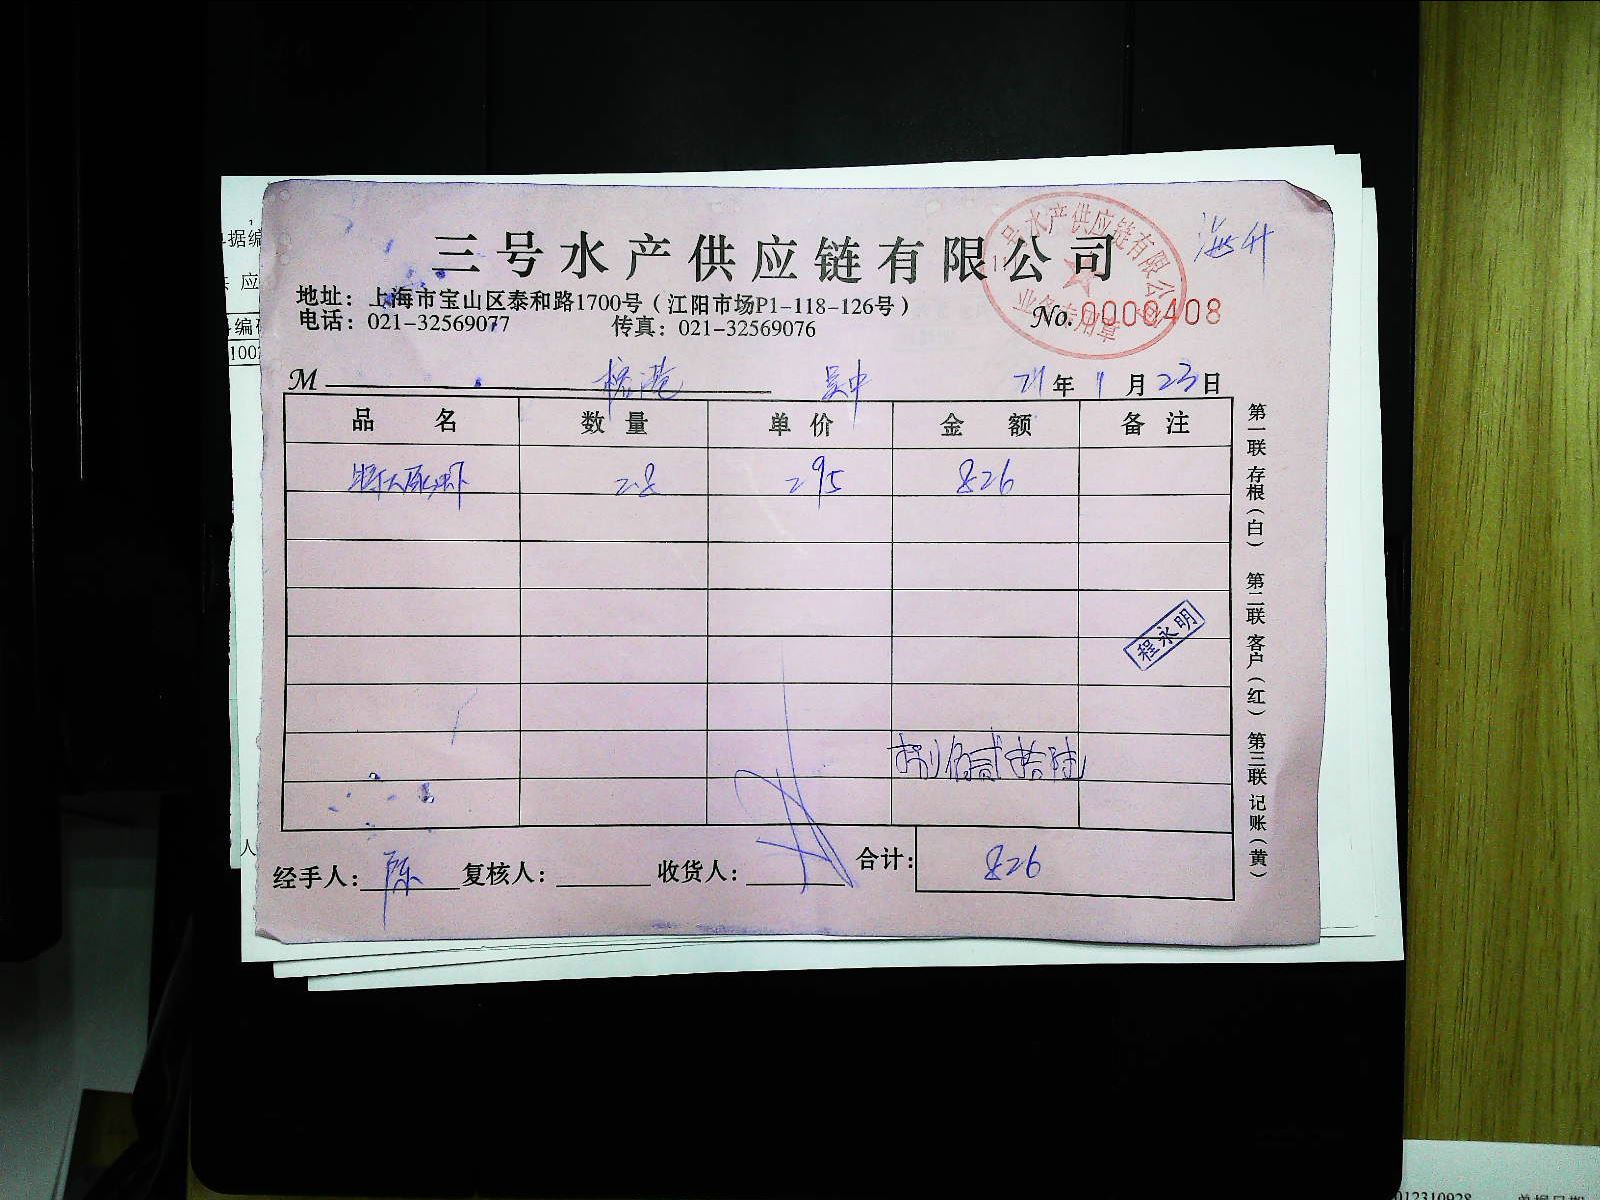 三号水产供应链有限公司
海升
地址：上海市宝山区泰和路1700号（江阳市场P1-118-126号）
电话：021-32569077 传真：021-32569076
No.0000408
三号水产供应链有限公司
业务专用章
M 榕港 吴中 21年1月23日
品名 数量 单价 金额 备注
特大死虾 2.8 295 826
程永明
捌佰贰拾陆
经手人：陈 复核人： 收货人： 合计：826
第一联 存根（白） 第二联 客户（红） 第三联 记账（黄）
据编
应
编
1002
人